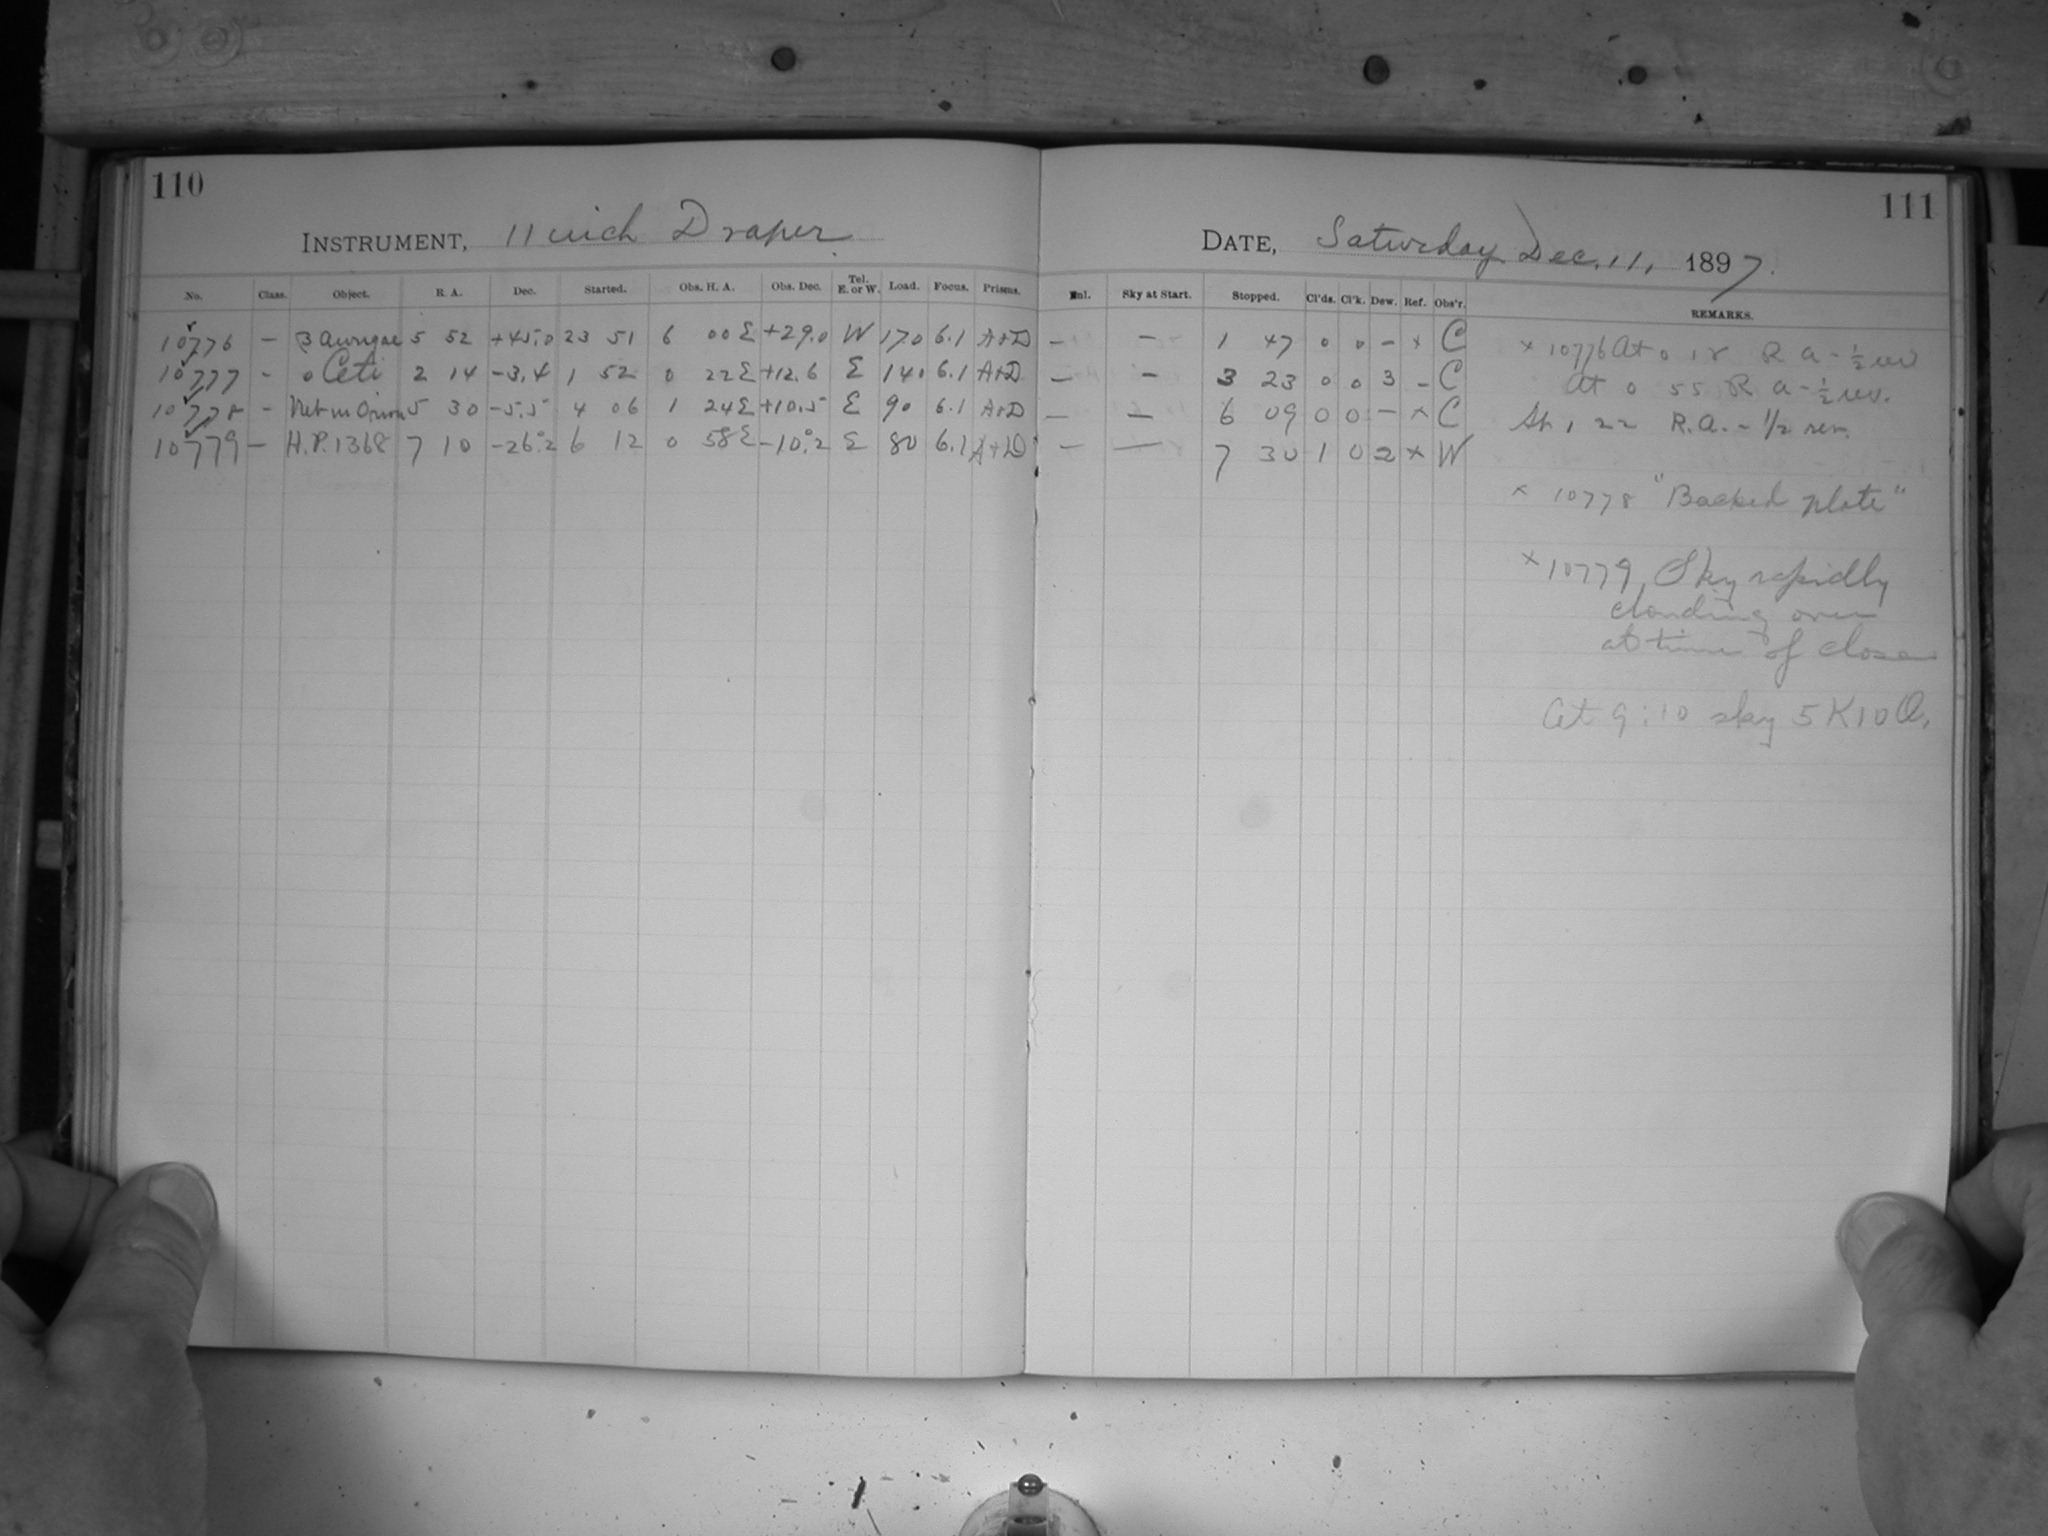 110
INSTRUMENT, 11 inch Draper
No. Class. Object. R. A. Dec. Started. Obs. H. A. Obs. Dec. Tel. E. or W. Load. Focus. Prisms.
10776 – β Aurigae 5 52 +45.0 23 51 6 00 E +29.0 W 170 6.1 A+D
10777 – o Ceti 2 14 –3.4 1 52 0 22 E +12.6 E 140 6.1 A+D
10778 – Neb in Orion 5 30 –5.5 4 06 1 24 E +10.5 E 90 6.1 A+D
10779 – H.P. 1368 7 10 –26.2 6 12 0 58 E –10.2 E 80 6.1 A+D
111
DATE, Saturday Dec. 11, 1897.
Enl. Sky at Start. Stopped. Cl'ds. Cl'k. Dew. Ref. Obs'r. REMARKS.
– – 1 47 0 0 – x C
– – 3 23 0 0 3 – C
– – 6 09 0 0 – x C
– – 7 30 1 0 2 x W
x 10776 At 0 18 R a – ½ rev
At 0 55 R a – ½ rev.
At 1 22 R.A. – 1/2 rev.
x 10778 "Backed plate"
x 10779, Sky rapidly
clouding over
at time of close
At 9:10 sky 5 K 10